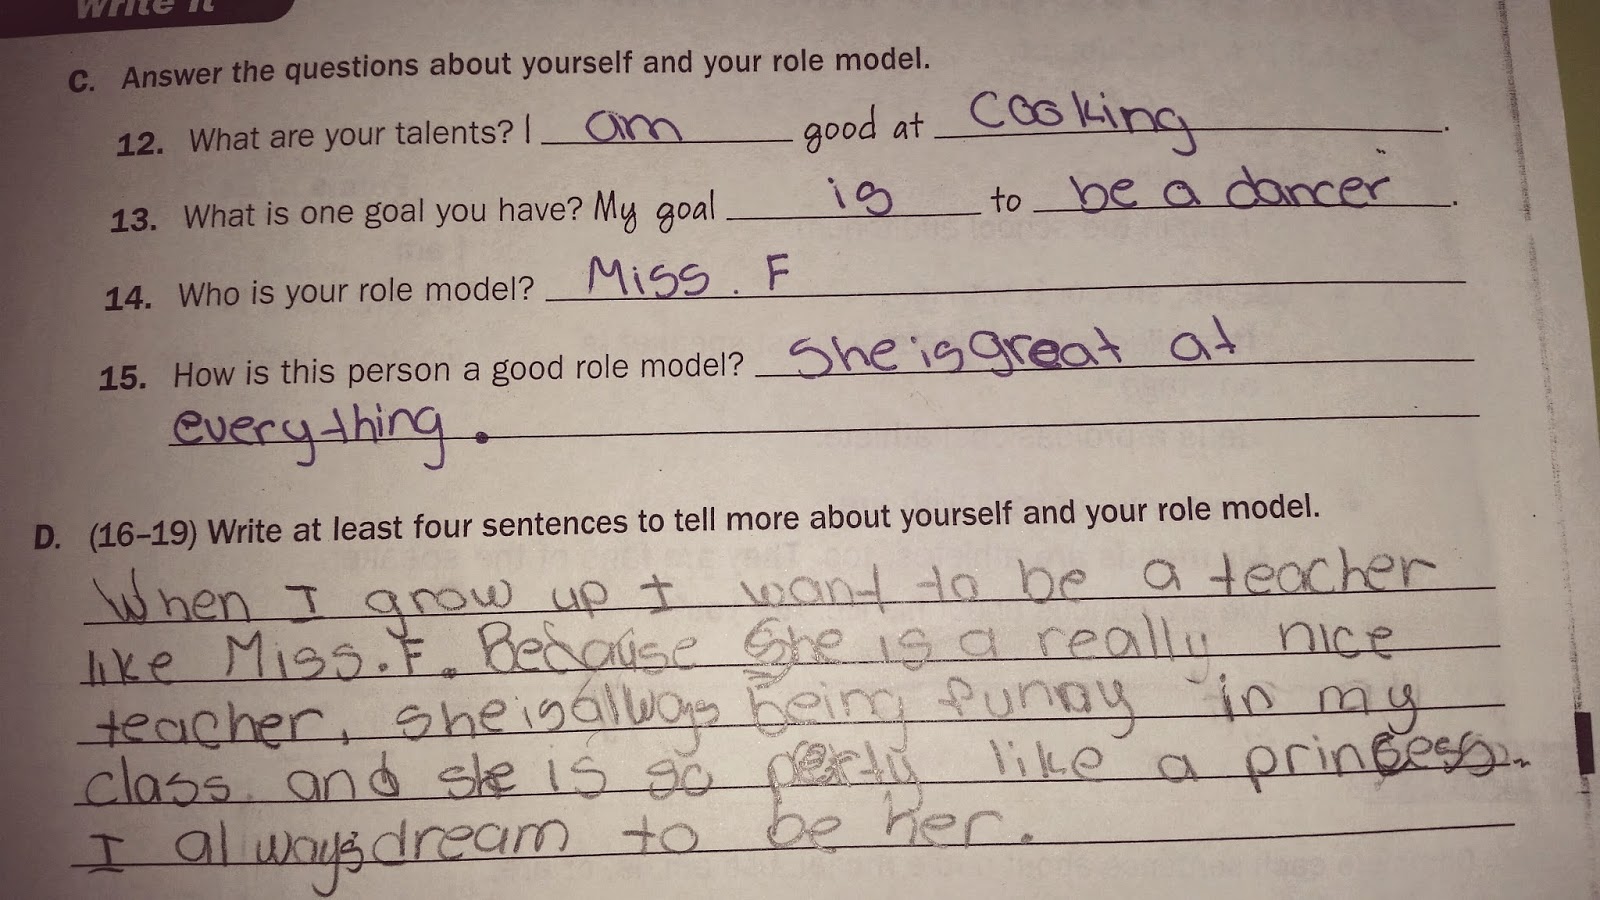 Write it
C. Answer the questions about yourself and your role model.
12. What are your talents? I am good at cooking.
13. What is one goal you have? My goal is to be a dancer.
14. Who is your role model? Miss. F
15. How is this person a good role model? She is great at
everything.
D. (16–19) Write at least four sentences to tell more about yourself and your role model.
When I grow up I want to be a teacher
like Miss. F. Because She is a really nice
teacher, she is always being funny in my
class. and she is so perty like a princess.
I always dream to be her.